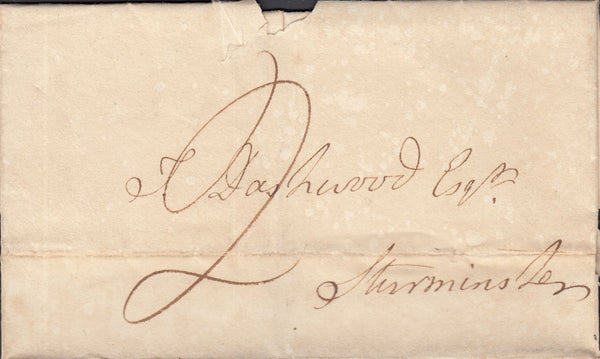 2
T. Dashwood Esqr
Sturminster